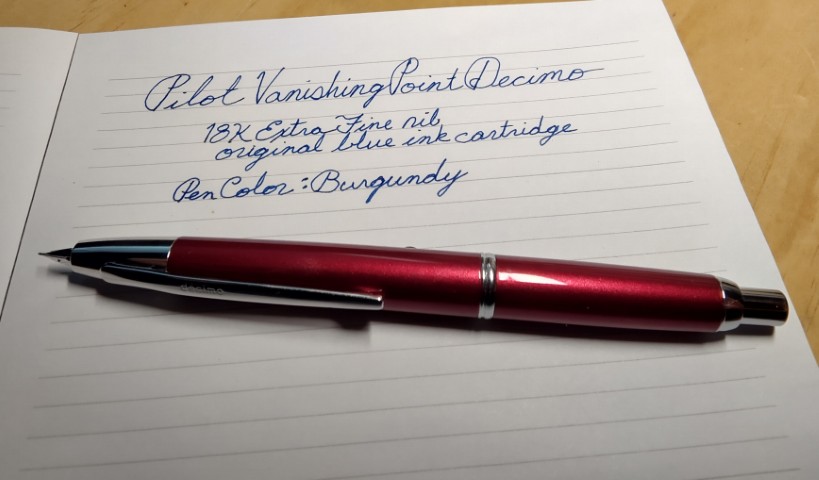 Pilot Vanishing Point Decimo
18K Extra Fine nib
original blue ink cartridge
Pen Color: Burgundy
decimo